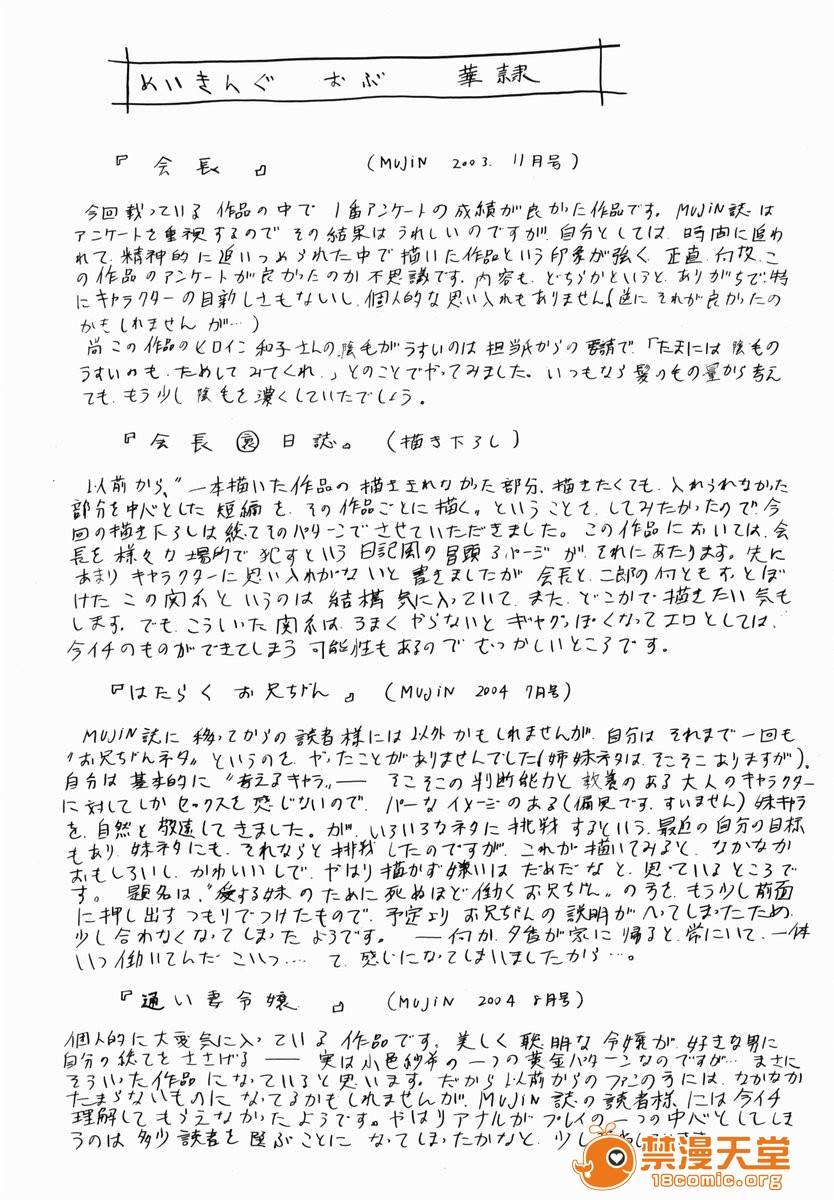 めいきんぐ おぶ 華隷
『会長』 (MUJIN 2003. 11月号)
今回載っている作品の中で1番アンケートの成績が良かった作品です。MUJIN誌は
アンケートを重視するのでその結果はうれしいのですが、自分としては、時間に追われ
て、精神的に追いつめられた中で描いた作品という印象が強く、正直、何故、こ
の作品のアンケートが良かったのか不思議です。内容も、どちらかというと、ありがちで、特
にキャラクターの目新しさもないし、個人的な思い入れもありません(逆にそれが良かったの
かもしれませんが…)
尚この作品のヒロイン和子さんの陰毛がうすいのは担当氏からの要請で、「たまには陰毛の
うすいのも、ためしてみてくれ。」とのことでやってみました。いつもなら髪の毛の量から考え
ても、もう少し陰毛を濃くしていたでしょう。
『会長㊙日誌。』(描き下ろし)
以前から、“一本描いた作品の描ききれなかった部分、描きたくても、入れられなかった
部分を中心とした短編を、その作品ごとに描く〟ということを、してみたかったので、今
回の描き下ろしは総てそのパターンでさせていただきました。この作品においては、会
長を様々な場所で犯すという日記風の冒頭3ページが、それにあたります。先に
あまりキャラクターに思い入れがないと書きましたが会長と、二郎の何ともすっとぼ
けたこの関係というのは結構気に入っていて、また、どこかで描きたい気も
します。でも、こういった関係は、うまくやらないとギャグっぽくなってエロとしては、
今イチのものができてしまう可能性もあるのでむつかしいところです。
『はたらくお兄ちゃん』(MUJIN 2004 7月号)
MUJIN誌に移ってからの読者様には以外かもしれませんが、自分はそれまで一回も
“お兄ちゃんネタ〟というのを、やったことがありませんでした(姉妹ネタは、そこそこありますが)。
自分は基本的に“考えるキャラ〟――そこそこの判断能力と教養のある大人のキャラクター
に対してしかセックスを感じないので、パーなイメージのある(偏見です、すいません)妹キャラ
を、自然と敬遠してきました。が、いろいろなネタに挑戦するという、最近の自分の目標
もあり、妹ネタにも、それならと挑戦したのですが、これが描いてみると、なかなか
おもしろいし、かわいいしで、やはり描かず嫌いはだめだなと、思っているところで
す。題名は、“愛する妹のために死ぬほど働くお兄ちゃん〟の方を、もう少し前面
に押し出すつもりでつけたもので、予定よりお兄ちゃんの説明がへってしまったため、
少し合わなくなってしまったようです。――何か、夕香が家に帰ると、常にいて、一体
いつ働いてんだこいつ…。て、感じになってしまいましたから…。
『通い妻令嬢』(MUJIN 2004 8月号)
個人的に大変気に入っている作品です。美しく聡明な令嬢が、好きな男に
自分の総てをささげる――実は小邑紗希の一つの黄金パターンなのですが…まさに
そういった作品になっていると思います。だから以前からのファンの方には、なかなか
たまらないものになってるかもしれませんが、MUJIN誌の読者様には今イチ
理解してもらえなかったようです。やはりアナルがプレイの一つの中心としてしま
うのは多少読者を選ぶことになってしまったかなと、少し
禁漫天堂
18comic.org